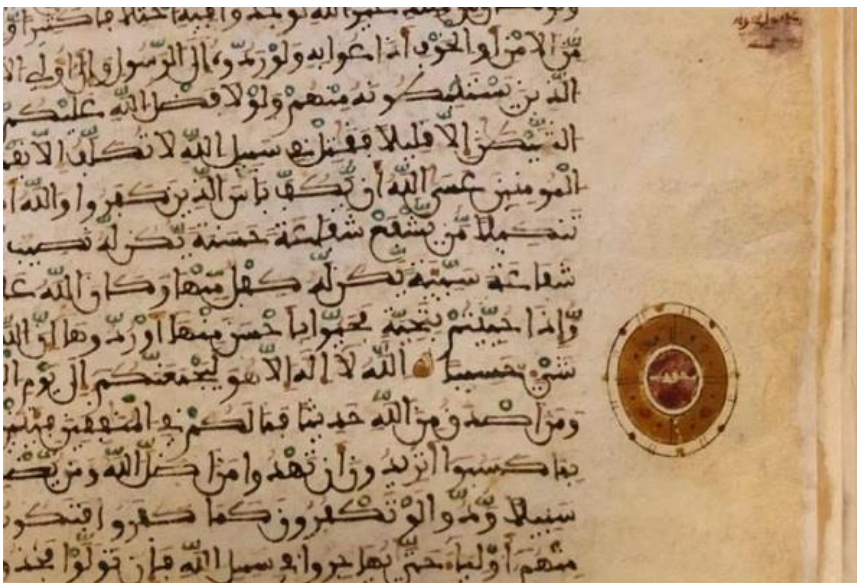 غير الله لوجدوا فيه اختلافا كثيرا و
من الامن أو الخوف أذاعوا به ولو ردوه إلى الرسول وإلى أولي الا
الذين يستنبطونه منهم ولولا فضل الله عليكم
الشيطن إلا قليلا فقتل في سبيل الله لا تكلف إلا نفـ
المومنين عسى الله أن يكف بأس الذين كفروا والله أ
تنكيلا من يشفع شفاعة حسنة يكن له نصيب
شفاعة سيئة يكن له كفل منها وكان الله عـ
وإذا حييتم بتحية فحيوا بأحسن منها أو ردوها إن اللـ
شيء حسيبا الله لا إله إلا هو ليجمعنكم إلى يوم ا
ومن أصدق من الله حديثا فما لكم في المنفقين فئتين
بما كسبوا أتريدون أن تهدوا من أضل الله ومن يضـ
سبيلا ودوا لو تكفرون كما كفروا فتكونو
منهم أولياء حتى يهاجروا في سبيل الله فإن تولوا فخذو